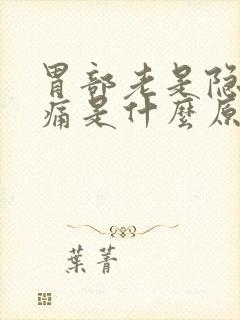 胃部老是隐
痛是什麼原
葉菁